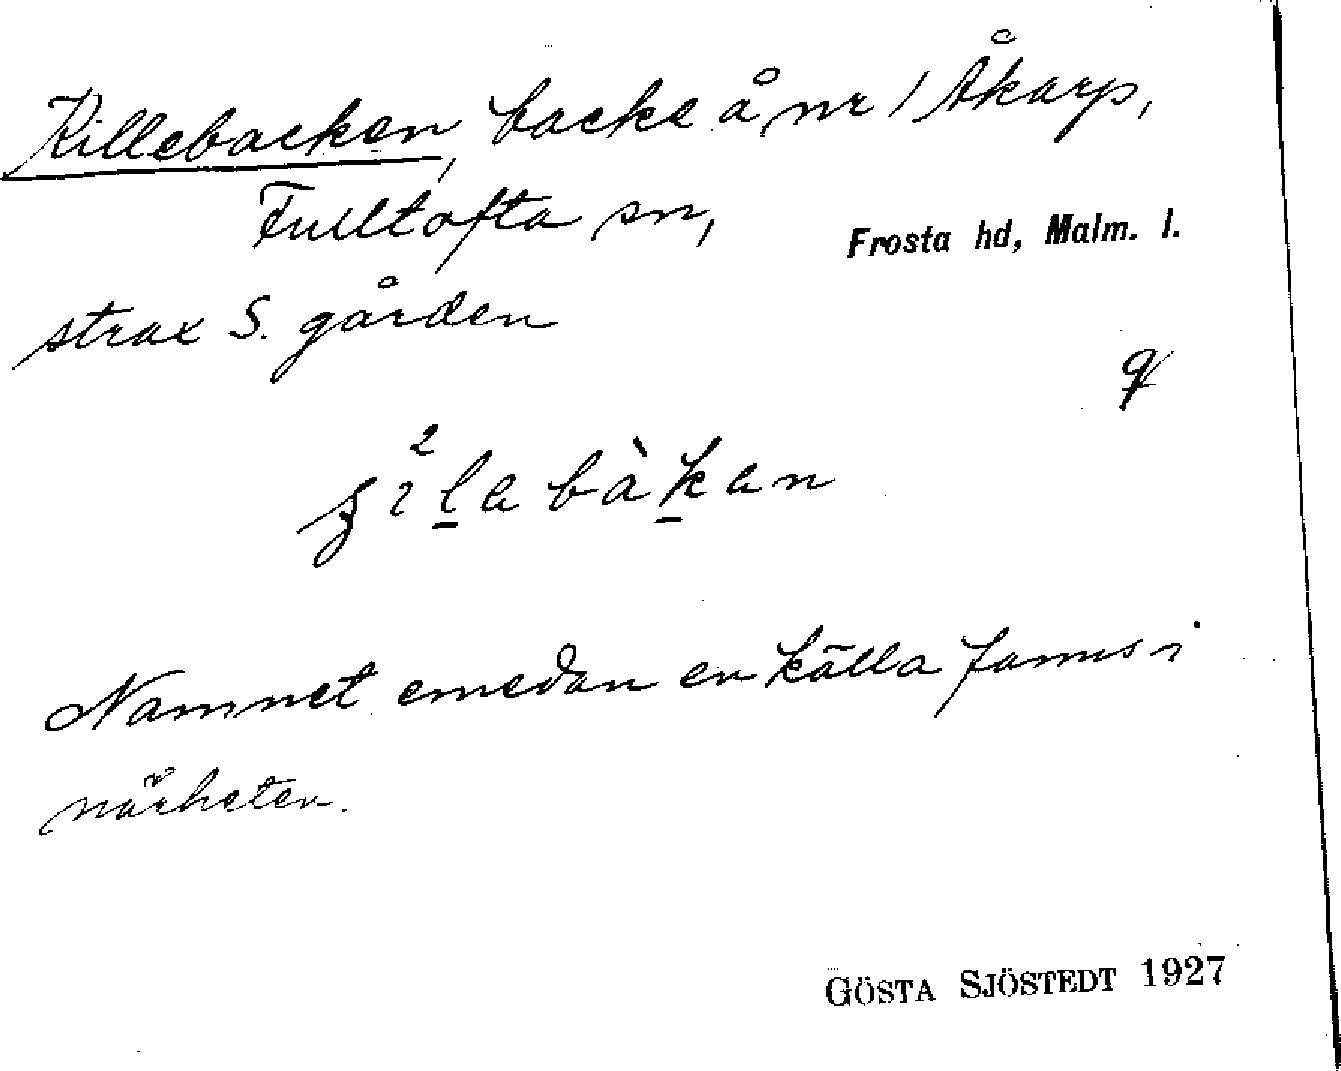 Killebacken, backe å nr 1 Åkarp,
Fulltofta sn, Frosta hd, Malm. l.
strax S. gården
Namnet emedan en källa fanns i
närheten.
GÖSTA SJÖSTEDT 1927